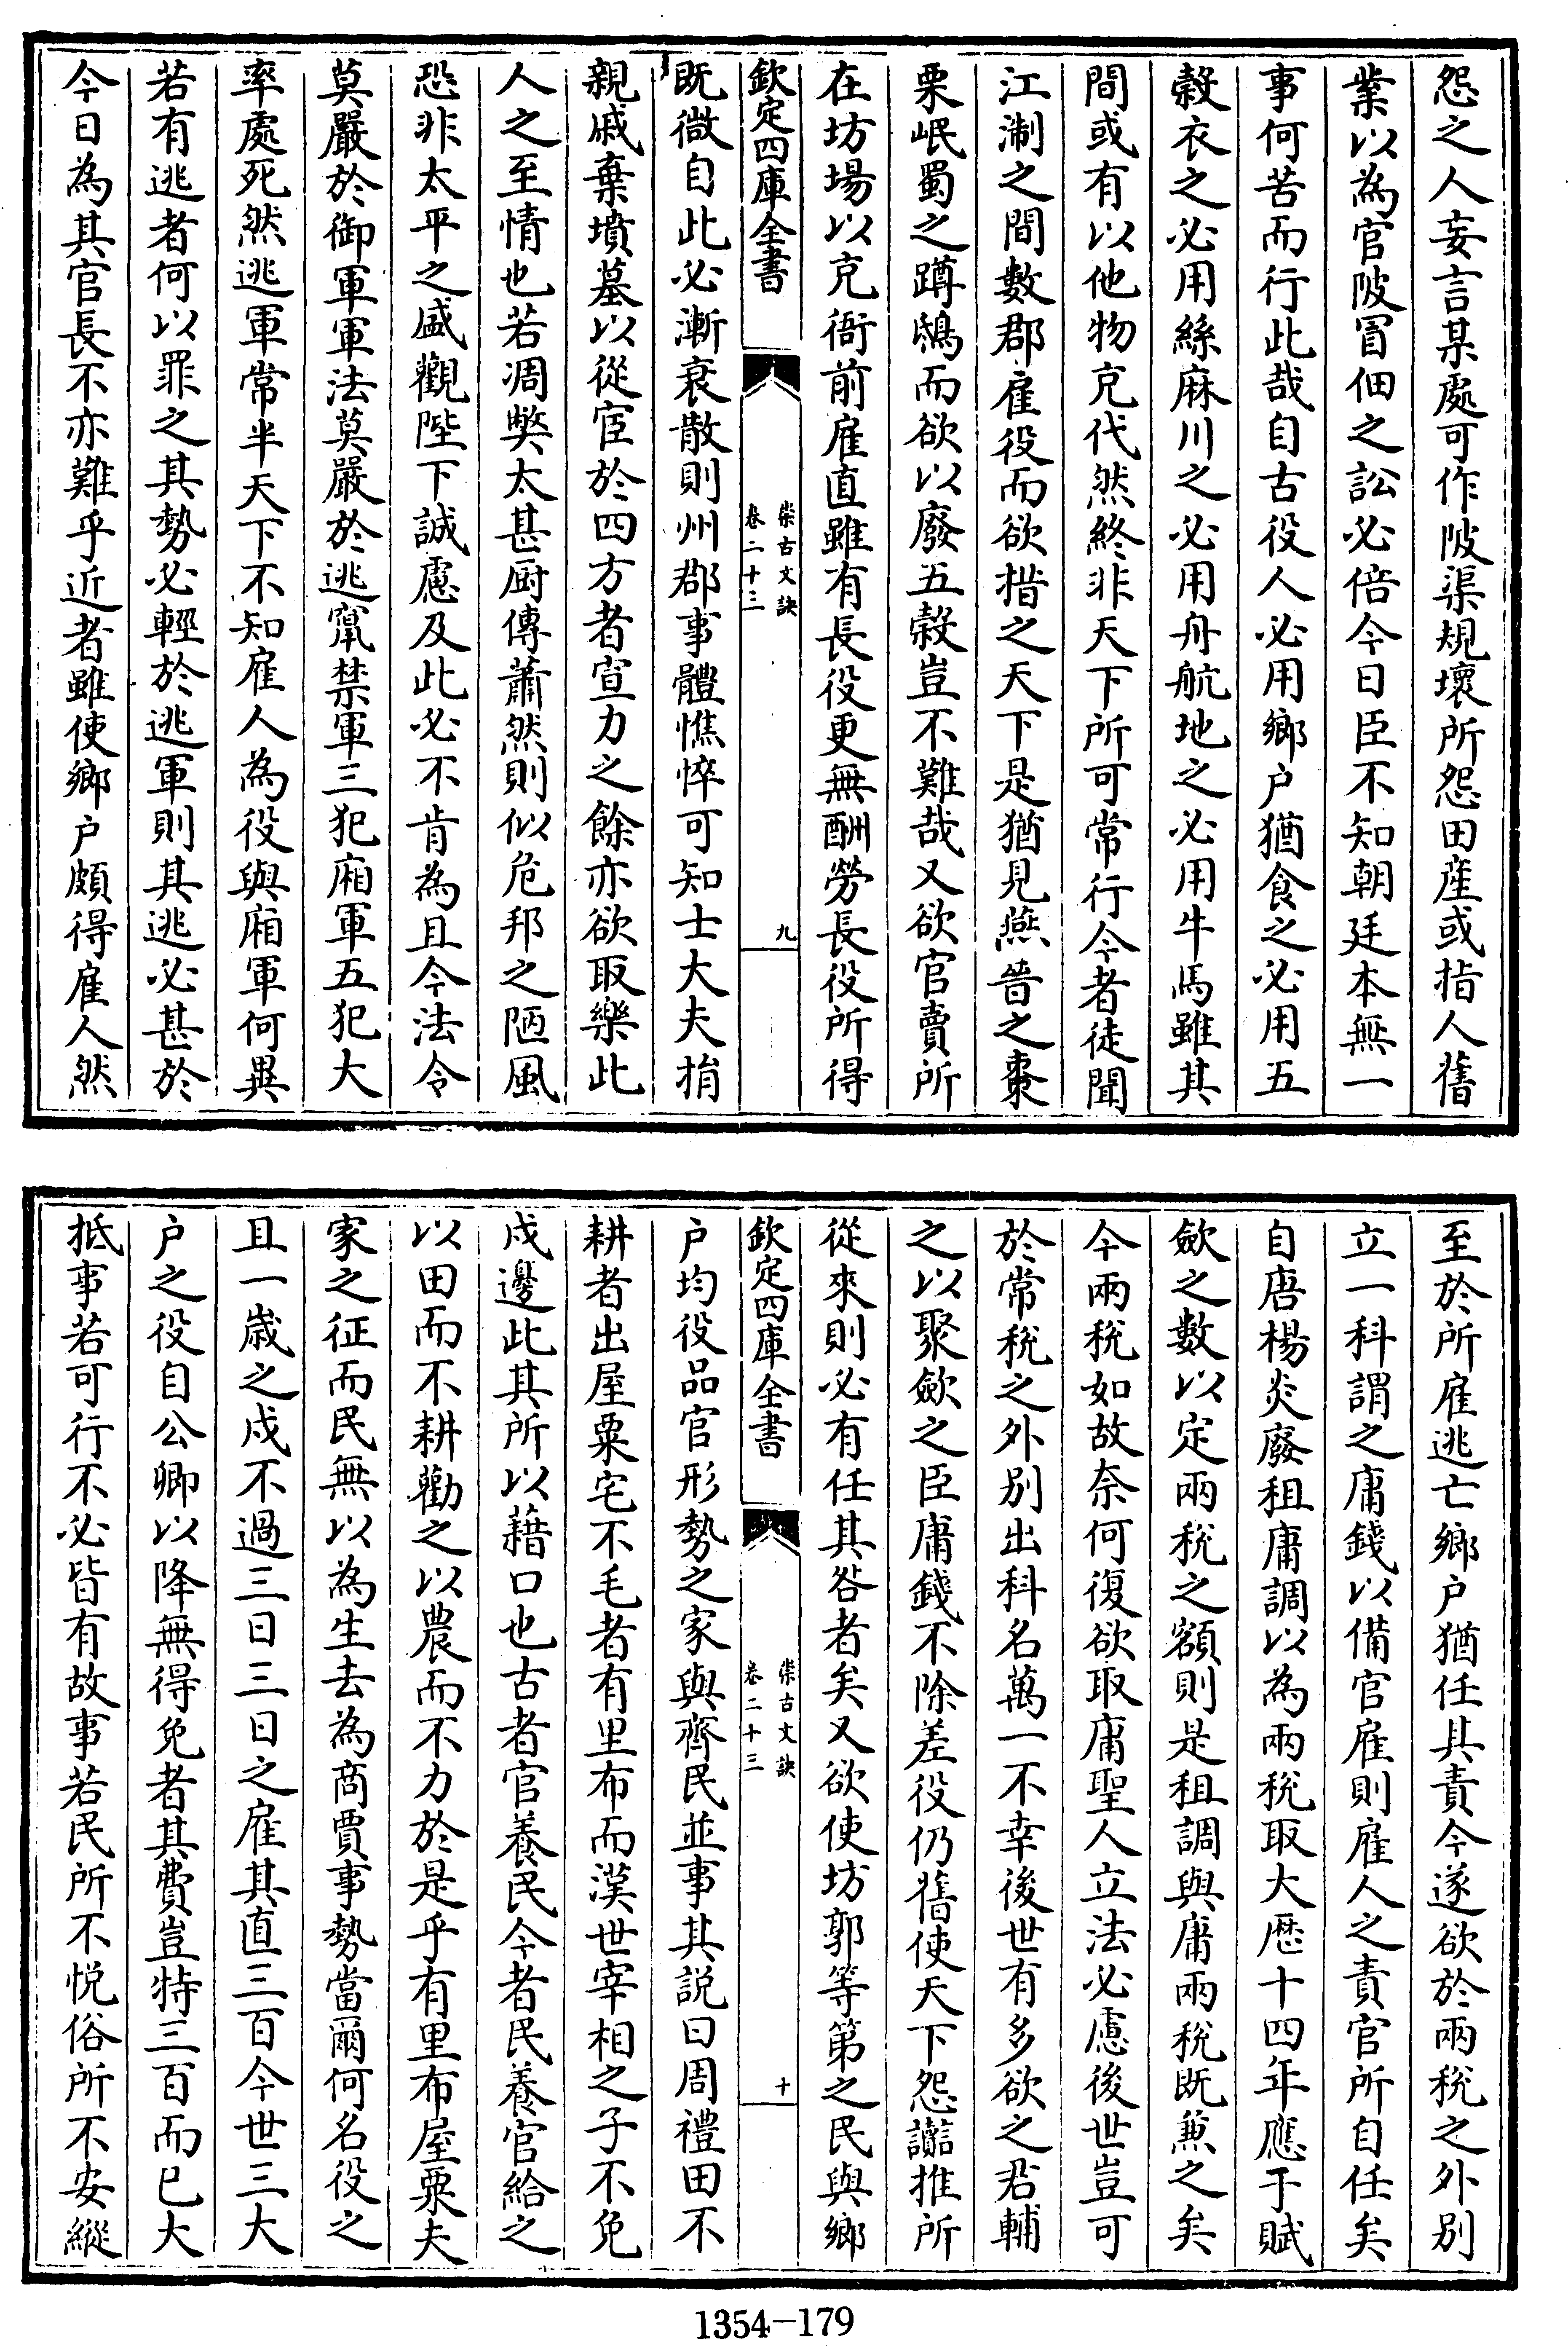 怨之人妄言某處可作陂渠規壞所怨田產或指人舊
業以為官陂冒佃之訟必倍今日臣不知朝廷本無一
事何苦而行此哉自古役人必用鄉户猶食之必用五
榖衣之必用絲麻川之必用舟航地之必用牛馬雖其
間或有以他物充代然終非天下所可常行今者徒聞
江淛之間數郡雇役而欲措之天下是猶見燕晉之棗
栗岷蜀之蹲鴟而欲以廢五榖豈不難哉又欲官賣所
在坊場以充衙前雇直雖有長役更無酬勞長役所得
欽定四庫全書
崇古文訣
卷二十三
九
既微自此必漸衰散則州郡事體憔悴可知士大夫捐
親戚棄墳墓以從宦於四方者宣力之餘亦欲取樂此
人之至情也若凋弊太甚厨傳蕭然則似危邦之陋風
恐非太平之盛觀陛下誠慮及此必不肯為且今法令
莫嚴於御軍軍法莫嚴於逃竄禁軍三犯廂軍五犯大
率處死然逃軍常半天下不知雇人為役與廂軍何異
若有逃者何以罪之其勢必輕於逃軍則其逃必甚於
今日為其官長不亦難乎近者雖使鄉户頗得雇人然
至於所雇逃亡鄉户猶任其責今遂欲於兩稅之外别
立一科謂之庸錢以備官雇則雇人之責官所自任矣
自唐楊炎廢租庸調以為兩稅取大歷十四年應于賦
斂之數以定兩稅之額則是租調與庸兩稅既兼之矣
今兩稅如故奈何復欲取庸聖人立法必慮後世豈可
於常稅之外别出科名萬一不幸後世有多欲之君輔
之以聚斂之臣庸錢不除差役仍舊使天下怨讟推所
從來則必有任其咎者矣又欲使坊郭等第之民與鄉
欽定四庫全書
崇古文訣
卷二十三
十
户均役品官形勢之家與齊民並事其説曰周禮田不
耕者出屋粟宅不毛者有里布而漢世宰相之子不免
戍邊此其所以藉口也古者官養民今者民養官給之
以田而不耕勸之以農而不力於是乎有里布屋粟夫
家之征而民無以為生去為商賈事勢當爾何名役之
且一歲之戍不過三日三日之雇其直三百今世三大
户之役自公卿以降無得免者其費豈特三百而已大
抵事若可行不必皆有故事若民所不悦俗所不安縱
1354－179